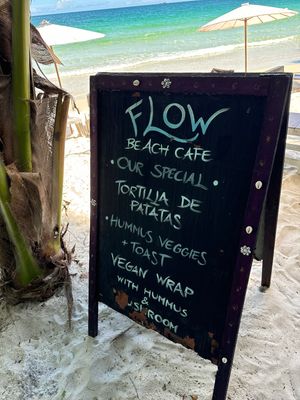 FLOW
BEACH CAFE
• OUR SPECIAL •
TORTILLA DE
PATATAS
• HUMMUS VEGGIES
+ TOAST
VEGAN WRAP
WITH HUMMUS
&
USHROOM